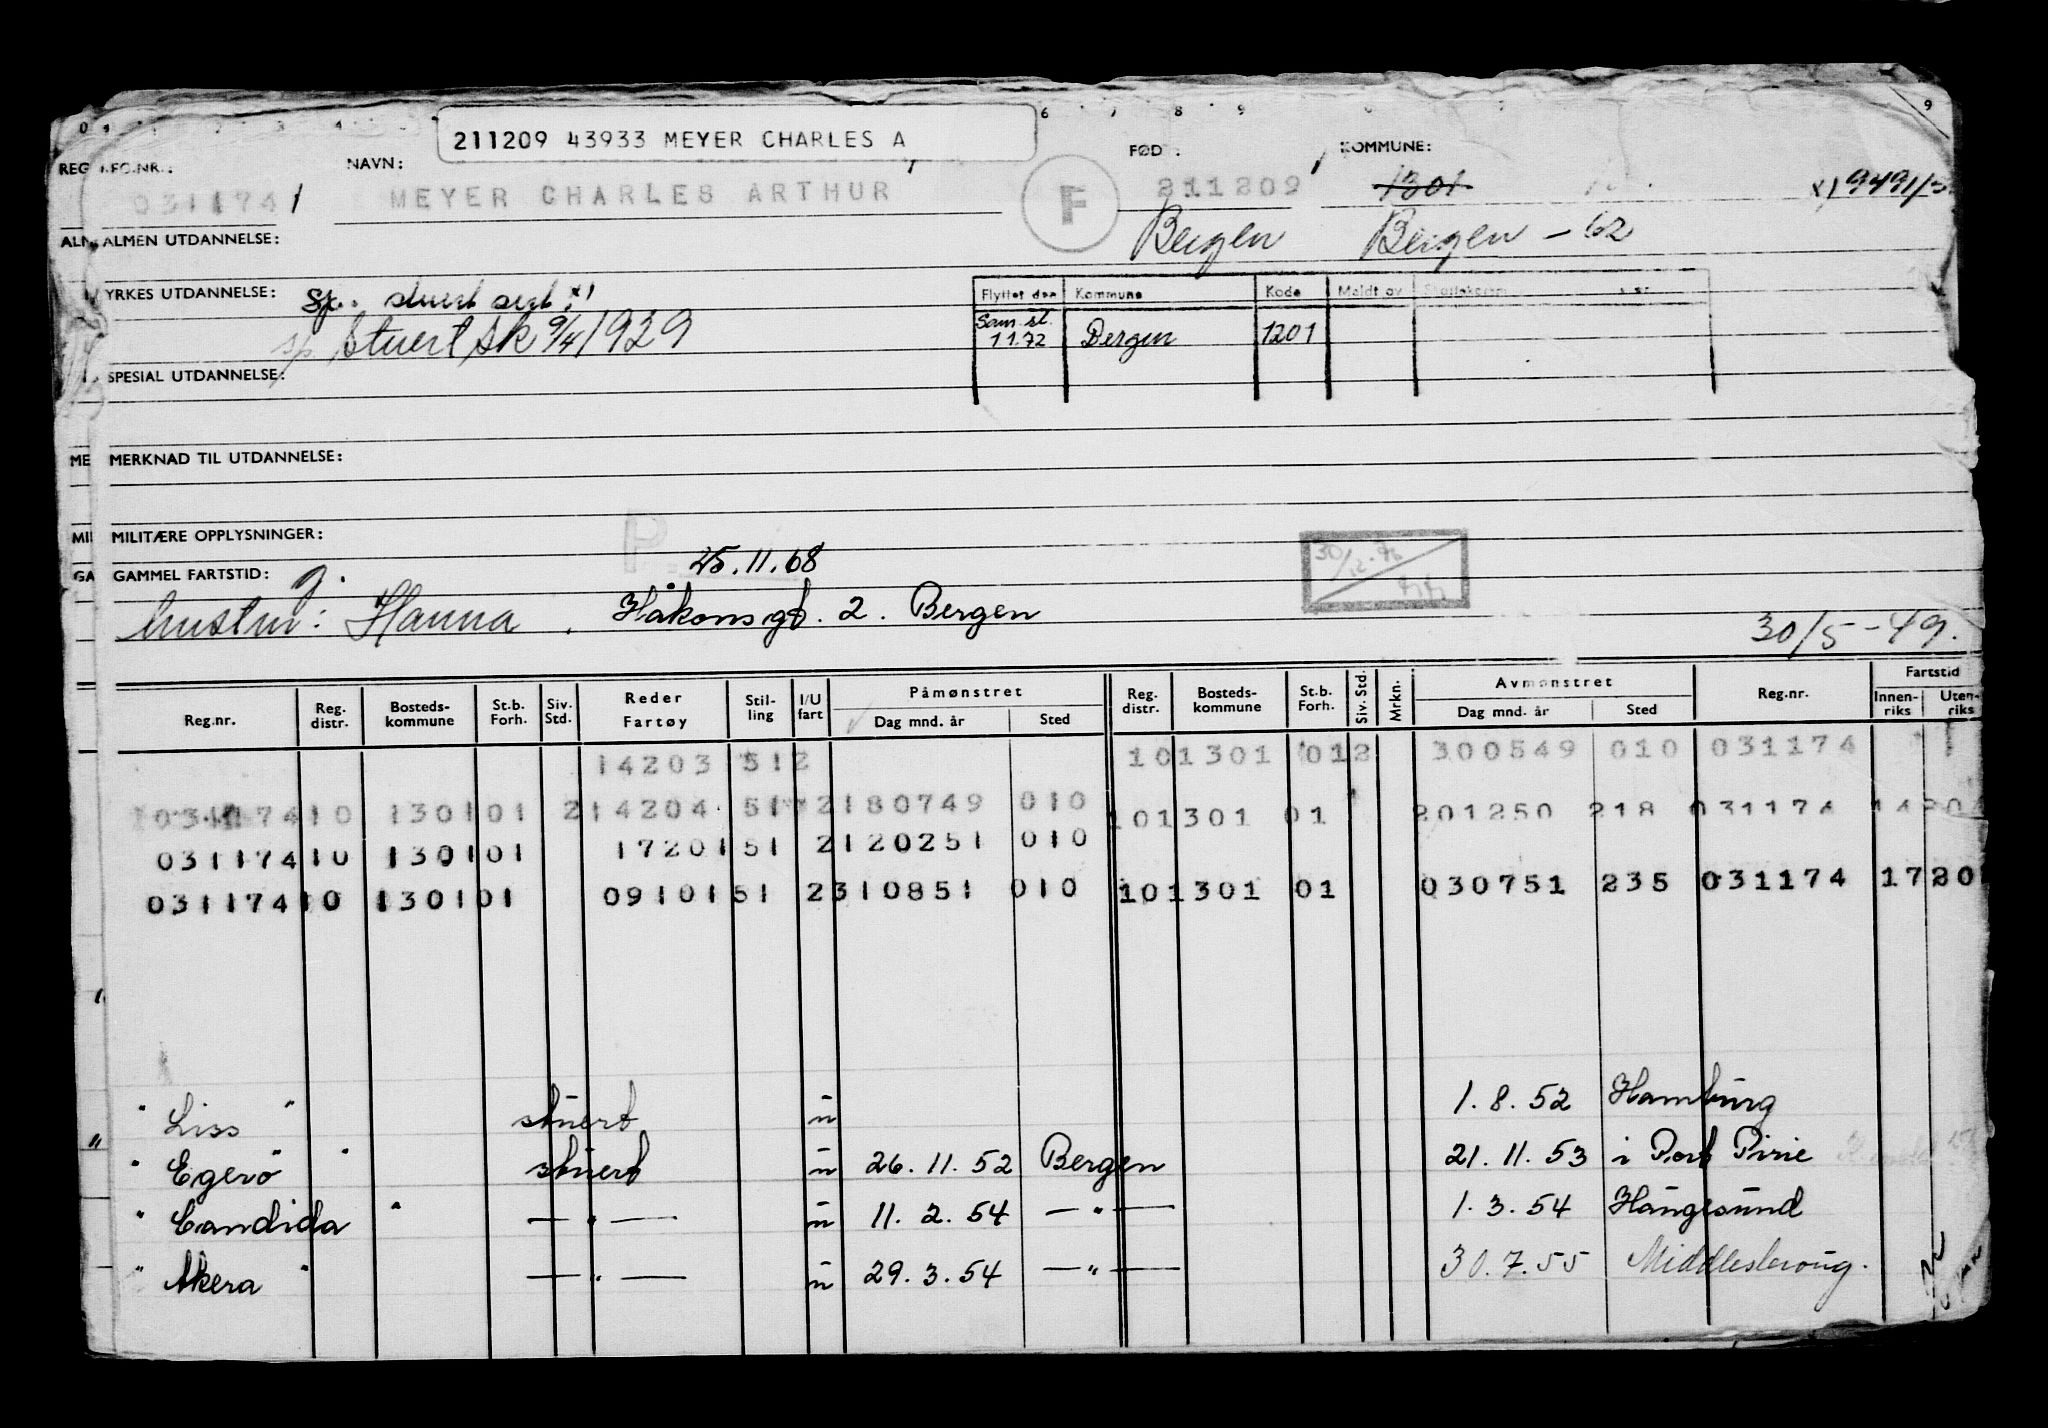 211209 43933 MEYER CHARLES A
REG.NR.: NAVN: FØDT: KOMMUNE:
0311741 MEYER CHARLES ARTHUR F 211209 1301
Bergen Bergen - 62
ALMEN UTDANNELSE:
YRKES UTDANNELSE: Sp. stuert sert. x)
sp Stuert sk 9/4 1929
Flyttet den Kommune Kode Meldt av
Sam. st. 1172 Bergen 1201
SPESIAL UTDANNELSE:
MERKNAD TIL UTDANNELSE:
MILITÆRE OPPLYSNINGER:
P. 25.11.68
GAMMEL FARTSTID: g.
hustru: Hanna, Håkonsgt. 2. Bergen
30/5-49.
Reg.nr. Reg. distr. Bosteds-kommune St.b. Forh. Siv. Std. Reder Fartøy Stil-ling I/U fart Påmønstret Dag mnd. år Sted Reg. distr. Bosteds-kommune St.b. Forh. Siv. Std. Mrkn. Avmønstret Dag mnd. år Sted Reg.nr. Fartstid Innen-riks Uten-riks
14203 512 101301 012 300549 010 031174
031174 10 1301 01 2 14204 51 2 180749 010 101301 01 201250 218 031174 14204
031174 10 1301 01 17201 51 2 120251 010
031174 10 1301 01 09101 51 2 310851 010 101301 01 030751 235 031174 1720
" Liss " stuert u 1.8.52 Hamburg
" Egerö " stuert u 26.11.52 Bergen 21.11.53 i Port Pirie
" Candida " — " — u 11.2.54 — " — 1.3.54 Haugesund
" Akera " — " — u 29.3.54 — " — 30.7.55 Middlesbroug.